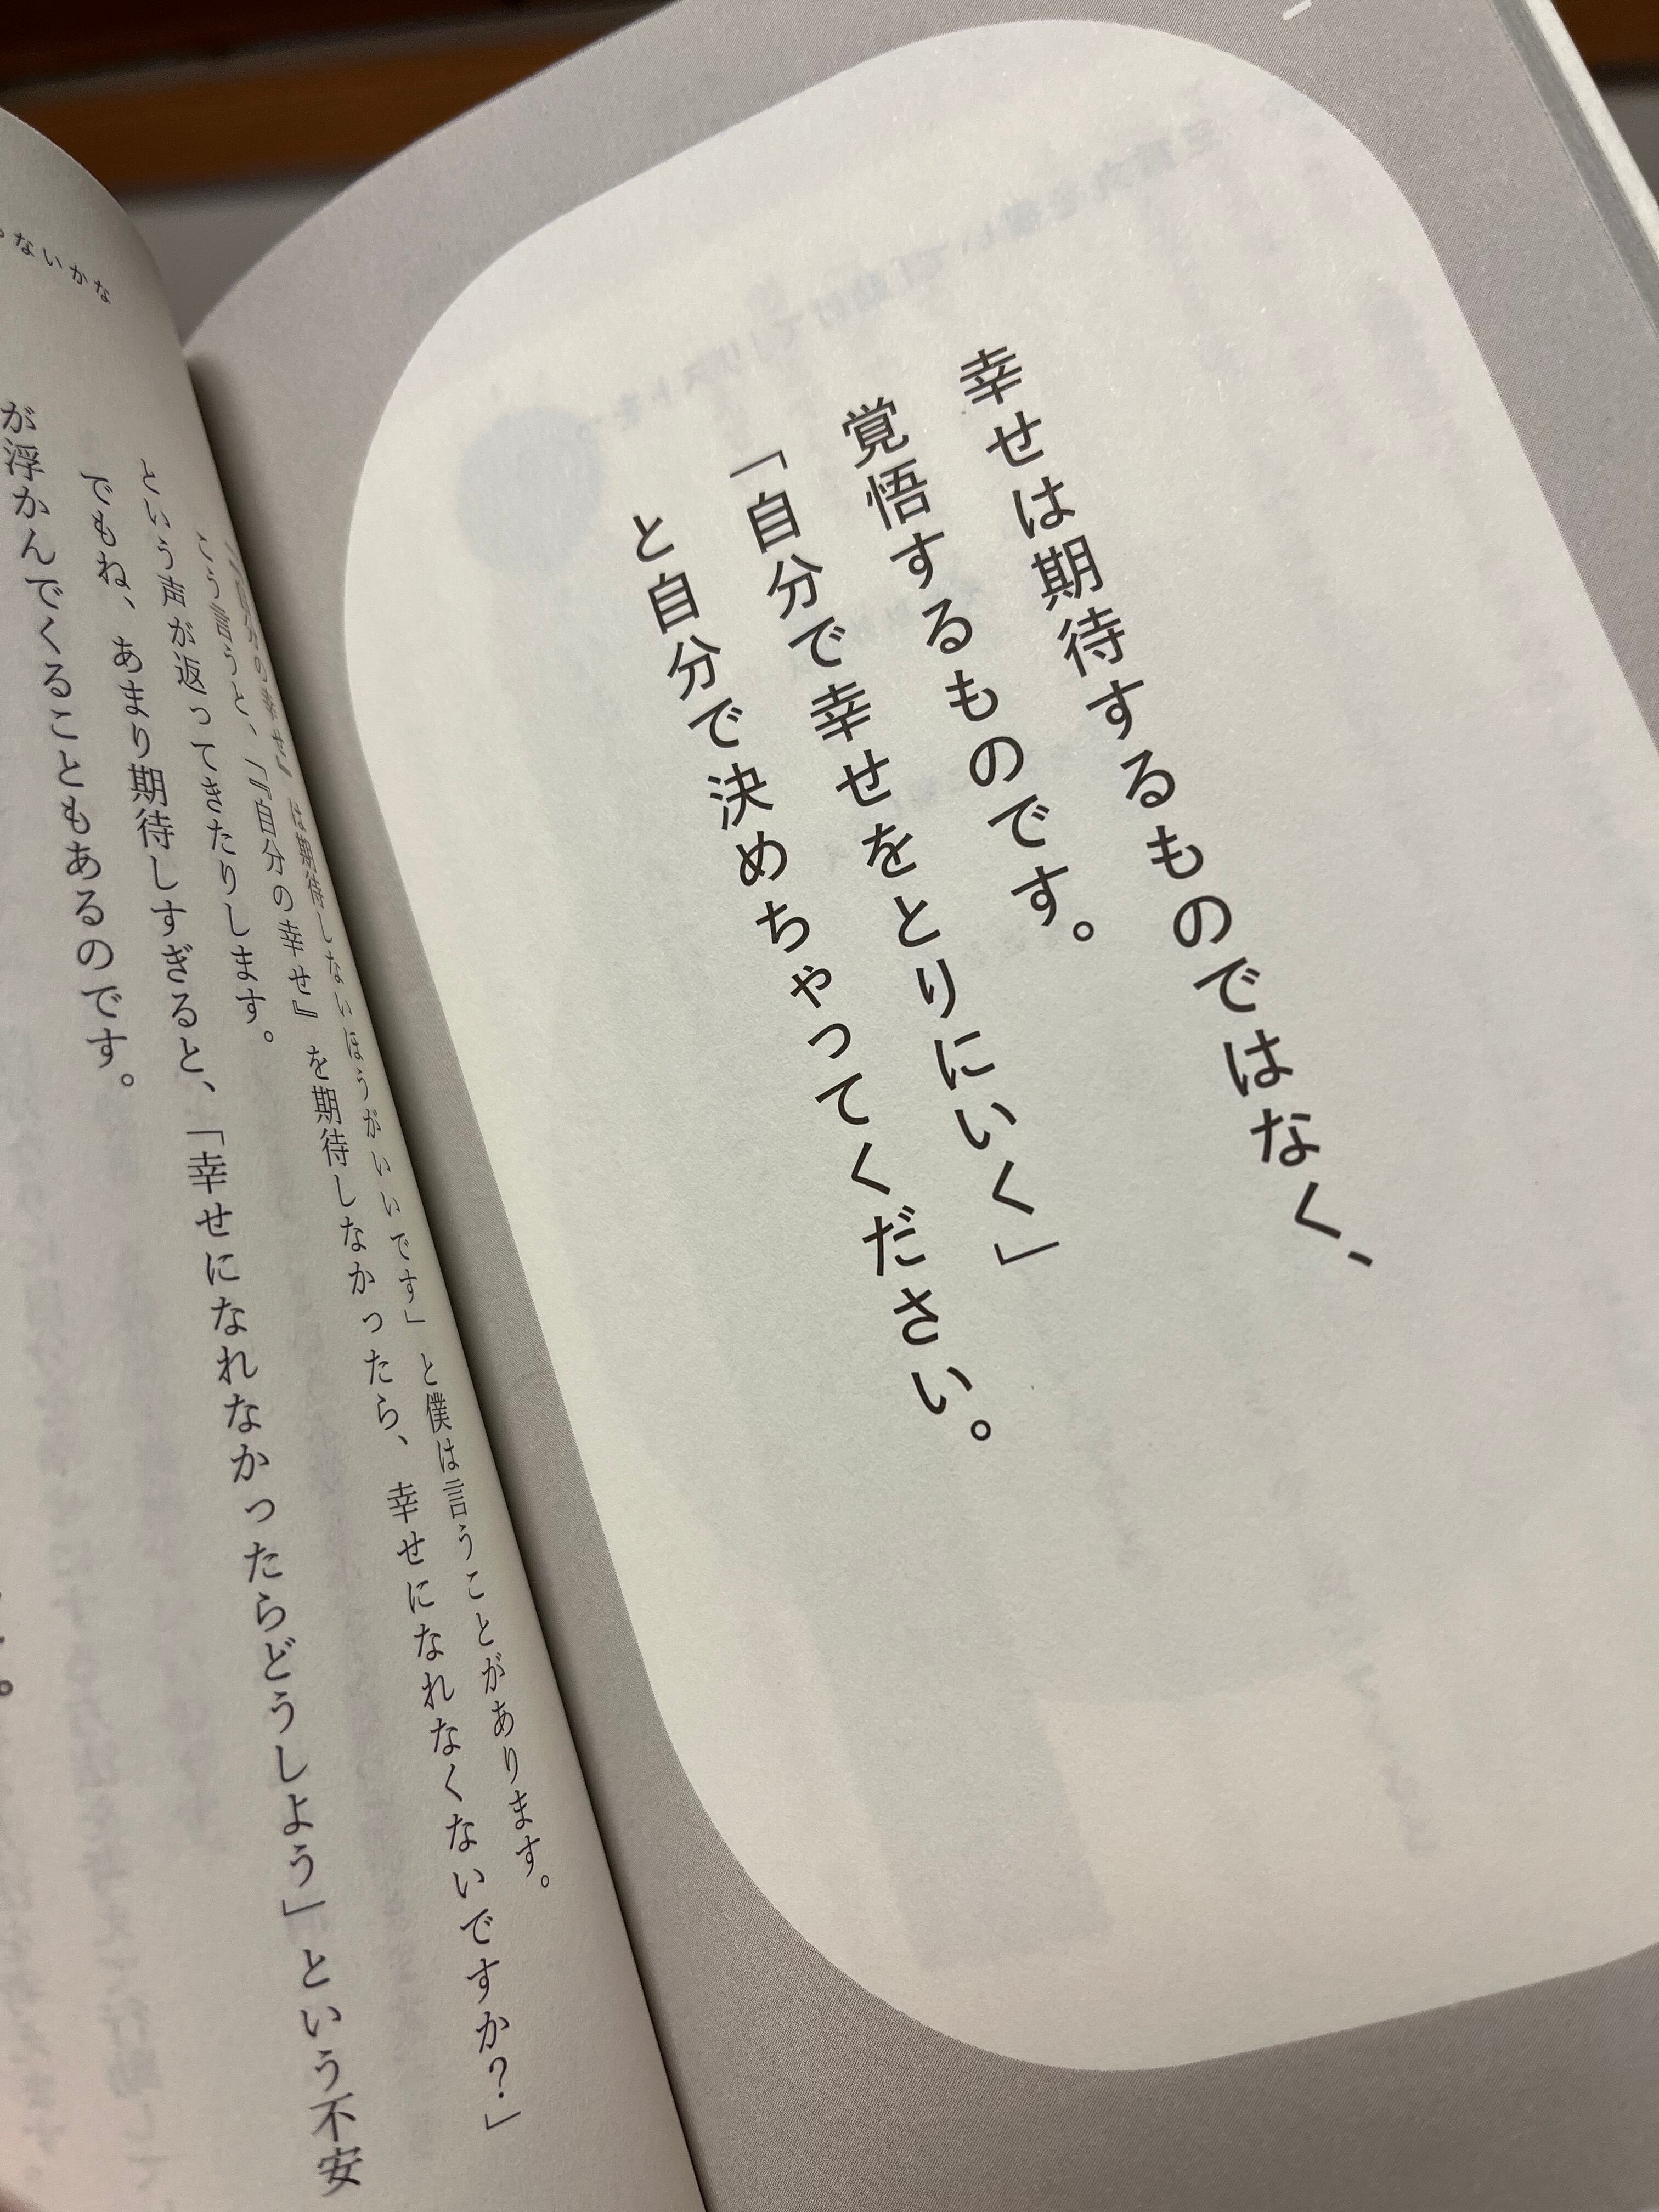 幸せは期待するものではなく、
覚悟するものです。
「自分で幸せをとりにいく」
と自分で決めちゃってください。
「『自分の幸せ』は期待しないほうがいいです」と僕は言うことがあります。
こう言うと、「『自分の幸せ』を期待しなかったら、幸せになれなくないですか？」
という声が返ってきたりします。
でもね、あまり期待しすぎると、「幸せになれなかったらどうしよう」という不安
が浮かんでくることもあるのです。
ないかな